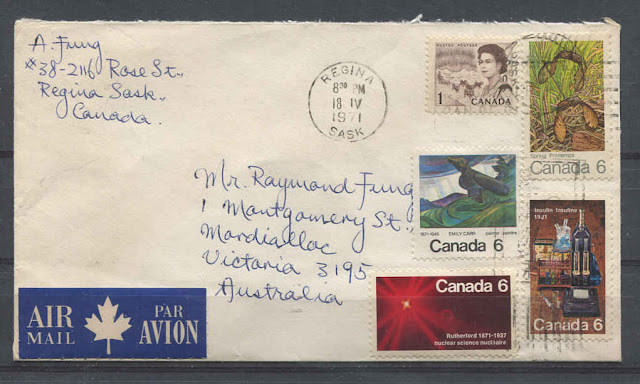 A. Fung
#38-2116 Rose St.,
Regina Sask.,
Canada.
REGINA
8 30 PM
18 IV
1971
SASK
POSTES POSTAGE
1 CANADA
Spring Printemps
Canada 6
Mr. Raymond Fung
1 Montgomery St.,
Mordialloc
Victoria 3195
Australia
1871-1945 EMILY CARR painter peintre
Canada 6
Insulin Insuline
1921
Canada 6
Canada 6
Rutherford 1871-1937
nuclear science nucléaire
AIR MAIL
PAR AVION